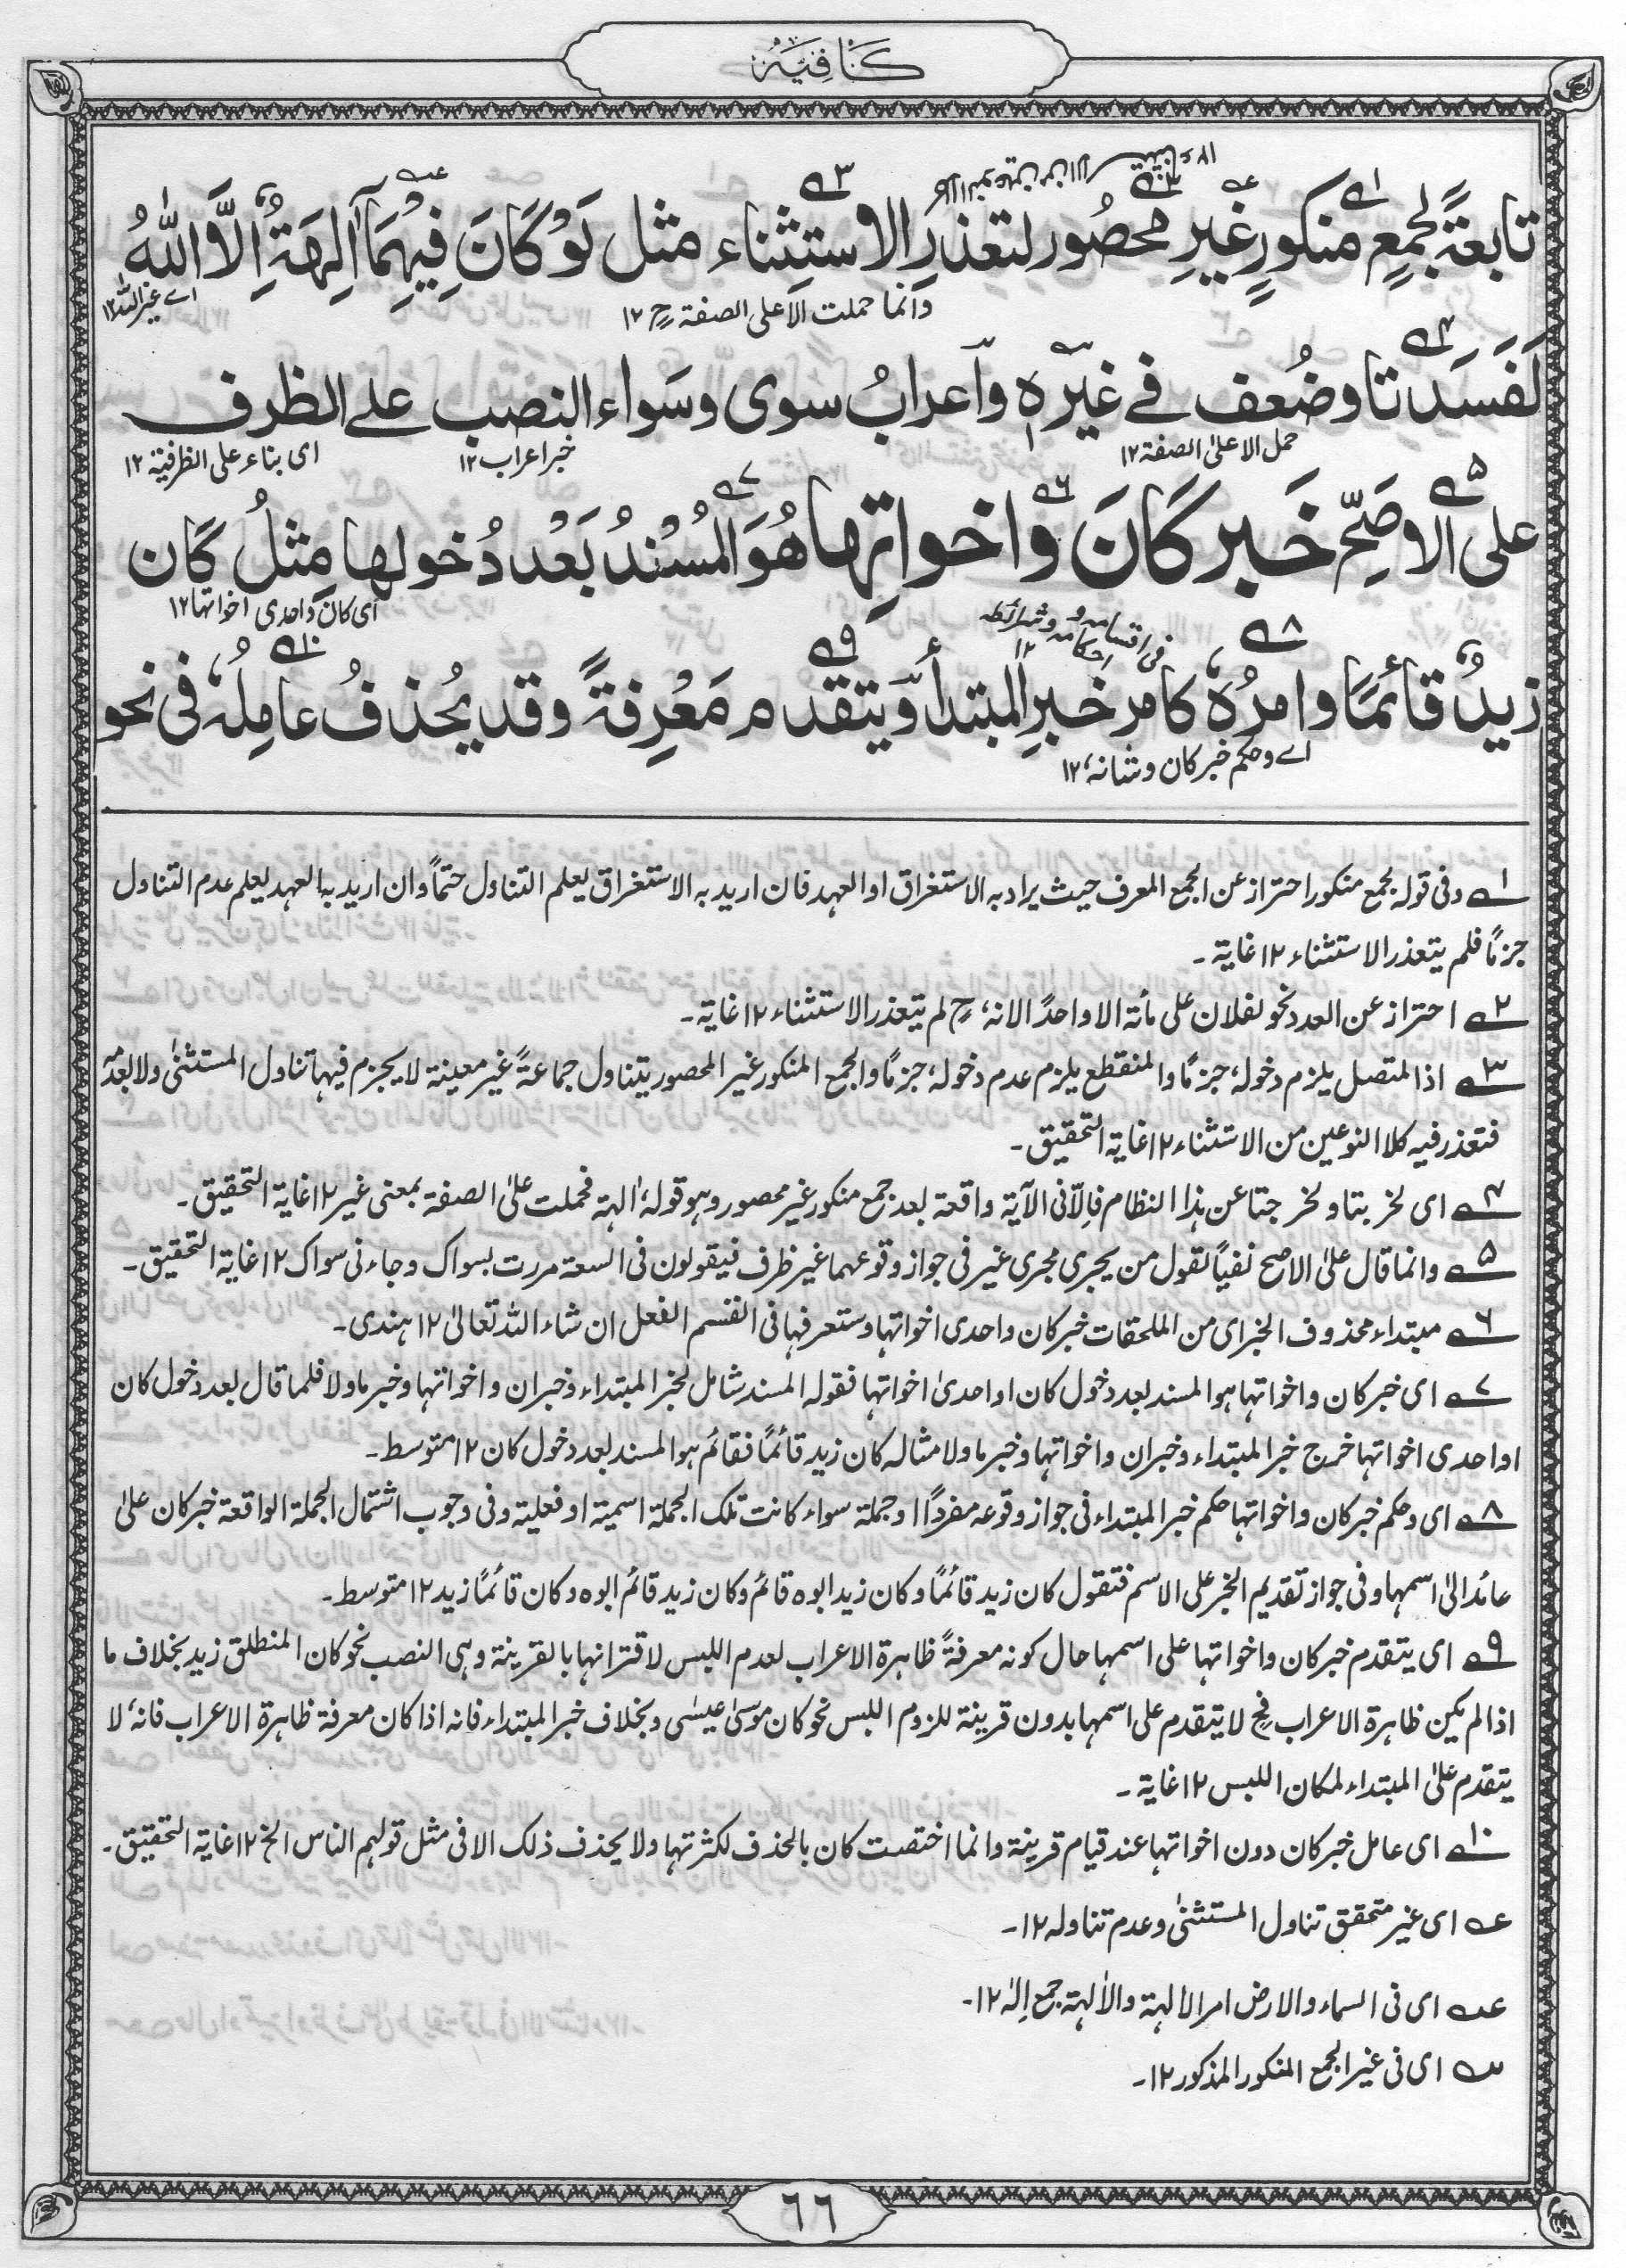 كَافِيَه
تابعةً لجمعٍ منكورٍ غيرِ محصُورٍ لتعذرِ الاستثناء مثل لَوْ كَانَ فِيْهِمَا آلِهَةٌ اِلَّا اللّٰهُ
وانما حملت الا على الصفة ح ١٢
اے غير اللّٰه ١٢
لَفَسَدَتا وضُعف فے غيرِهٖ واَعرابُ سوى وسَواء النصب علے الظرف
حمل الا على الصفة ١٢
خبر اعراب ١٢
اى بناء على الظرفية ١٢
على الاصَحِّ خَبر كَانَ واخواتِها هُوَ المُسْنَدُ بَعْد دُخولها مِثلُ كَان
اى كان واحدى اخواتها ١٢
فى اقسامه و احكامه و شرائطه ١٢
زيدٌ قائمًا وامرُهٗ كامرِ خبرِ المبتدأ ويتقدم مَعْرِفةً وقد يُحذفُ عامِلُهٗ فى نحو
اے وحكم خبر كان وشانهٗ ١٢
١ وفى قوله لجمع منكور احتراز عن الجمع المعرف حيث يراد به الاستغراق او العهد فان اريد به الاستغراق يعلم التناول حتمًا وان اريد به العهد يعلم عدم التناول
جزمًا فلم يتعذر الاستثناء ١٢ غاية ۔
٢ احتراز عن العدد نحو لفلان على مأة الا واحدًا لانهٗ ح لم يتعذر الاستثناء ١٢ غاية ۔
٣ اذ المتصل يلزم دخولهٗ جزمًا والمنقطع يلزم عدم دخولهٗ جزمًا والجمع المنكور غير المحصور يتناول جماعةً غير معينة لا يجزم فيها تناول المستثنىٰ ولا بعدمه
فتعذر فيه كلا النوعين من الاستثناء ١٢ غاية التحقيق ۔
٤ اى لخربتا ولخرجتا عن هذا النظام فالّا فى الآية واقعة بعد جمع منكور غير محصور وهو قولهٗ اٰلهة فحملت علىٰ الصفة بمعنى غير ١٢ غاية التحقيق ۔
٥ وانما قال علىٰ الاصح نفيًا لقول من يجرى مجرى غير فى جواز وقوعهما غير ظرف فيقولون فى السعة مررت بسواك وجاءنى سواك ١٢ غاية التحقيق ۔
٦ مبتداء محذوف الخبر اى من الملحقات خبر كان واحدى اخواتها وستعرفها فى القسم الفعل ان شاء اللّٰه تعالىٰ ١٢ هندى ۔
٧ اى خبر كان واخواتها هو المسند بعد دخول كان او احدىٰ اخواتها فقوله المسند شامل لخبر المبتداء وخبر ان واخواتها وخبر ما ولا فلما قال بعد دخول كان
او احدى اخواتها خرج خبر المبتداء وخبر ان واخواتها وخبر ما ولا مثاله كان زيد قائمًا فقائمٌ هو المسند بعد دخول كان ١٢ متوسط ۔
٨ اى وحكم خبر كان واخواتها حكم خبر المبتداء فى جواز وقوعه مفردًا او جملة سواء كانت تلك الجملة اسمية او فعلية وفى وجوب اشتمال الجملة الواقعة خبر كان علىٰ
عائد الىٰ اسمها وفى جواز تقديم الخبر على الاسم فتقول كان زيد قائمًا وكان زيد ابوه قائمٌ وكان زيد قائمٌ ابوه وكان قائمًا زيد ١٢ متوسط ۔
٩ اى يتقدم خبر كان واخواتها على اسمها حال كونه معرفةً ظاهرة الاعراب لعدم اللبس لاقترانها بالقرينة وهى النصب نحو كان المنطلق زيد بخلاف ما
اذا لم يكن ظاهرة الاعراب فح لا يتقدم على اسمها بدون قرينة للزوم اللبس نحو كان موسىٰ عيسىٰ وبخلاف خبر المبتداء فانه اذا كان معرفة ظاهرة الاعراب فانهٗ لا
يتقدم علىٰ المبتداء لمكان اللبس ١٢ غاية ۔
١٠ اى عامل خبر كان دون اخواتها عند قيام قرينة وانما اختصت كان بالحذف لكثرتها ولا يحذف ذلك الا فى مثل قولهم الناس الخ ١٢ غاية التحقيق ۔
عـ اى غير متحقق تناول المستثنىٰ وعدم تناوله ١٢ ۔
عـ اى فى السماء والارض امر الاٰلهة والاٰلهة جمع اِلٰه ١٢ ۔
سـ اى فى غير الجمع المنكور المذكور ١٢ ۔
٦٦